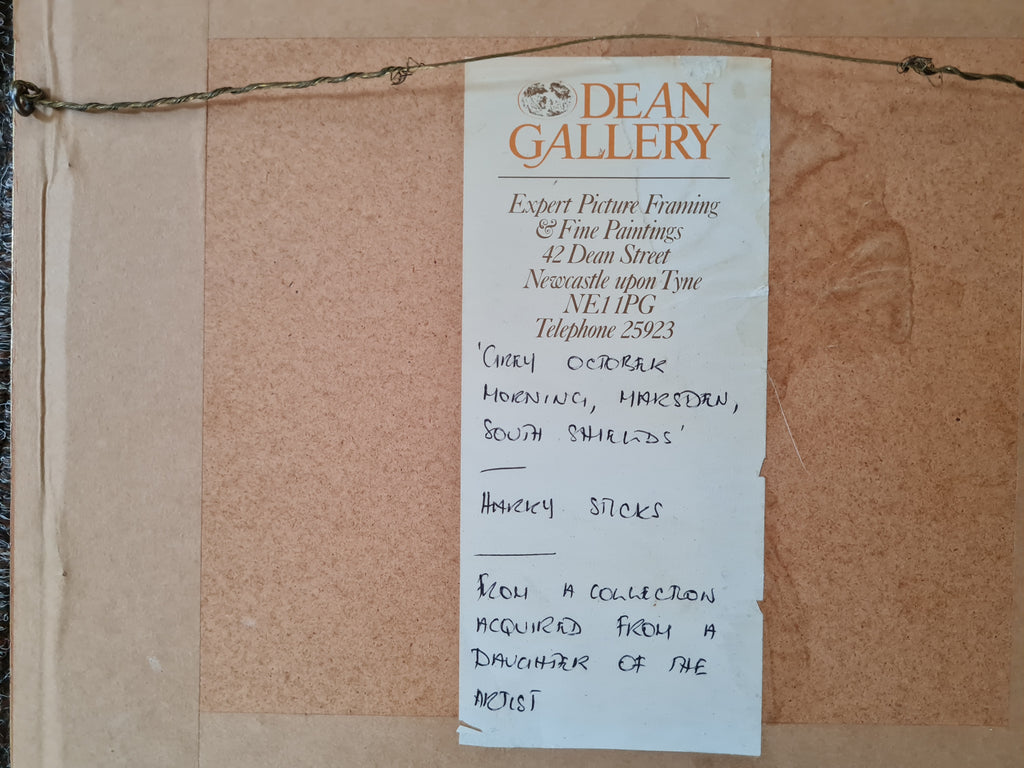 DEAN
GALLERY
Expert Picture Framing
& Fine Paintings
42 Dean Street
Newcastle upon Tyne
NE1 1PG
Telephone 25923
'GREY OCTOBER
MORNING, MARSDEN,
SOUTH SHIELDS'
HARRY STICKS
FROM A COLLECTION
ACQUIRED FROM A
DAUGHTER OF THE
ARTIST